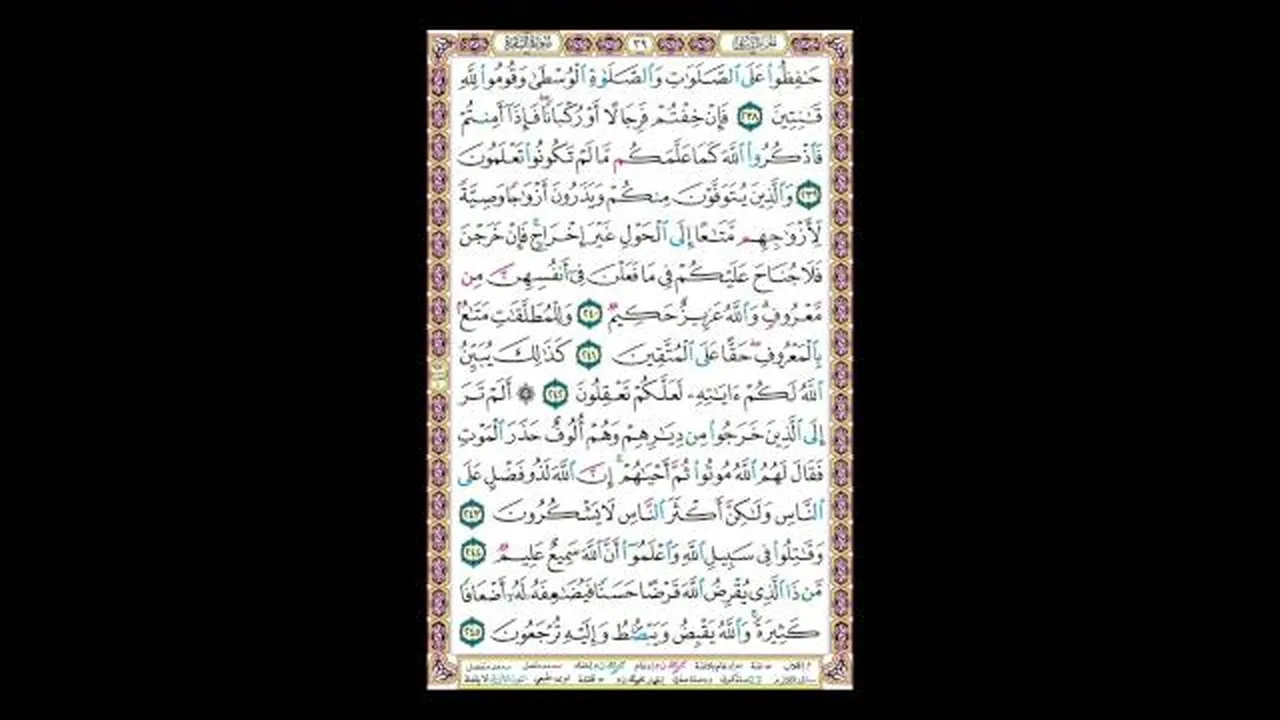 الجزء الثاني ٣٩ سورة البقرة
حَـٰفِظُوا۟ عَلَى ٱلصَّلَوَٰتِ وَٱلصَّلَوٰةِ ٱلْوُسْطَىٰ وَقُومُوا۟ لِلَّهِ
قَـٰنِتِينَ ٢٣٨ فَإِنْ خِفْتُمْ فَرِجَالًا أَوْ رُكْبَانًا ۖ فَإِذَآ أَمِنتُمْ
فَٱذْكُرُوا۟ ٱللَّهَ كَمَا عَلَّمَكُم مَّا لَمْ تَكُونُوا۟ تَعْلَمُونَ
٢٣٩ وَٱلَّذِينَ يُتَوَفَّوْنَ مِنكُمْ وَيَذَرُونَ أَزْوَٰجًا وَصِيَّةً
لِّأَزْوَٰجِهِم مَّتَـٰعًا إِلَى ٱلْحَوْلِ غَيْرَ إِخْرَاجٍ ۚ فَإِنْ خَرَجْنَ
فَلَا جُنَاحَ عَلَيْكُمْ فِى مَا فَعَلْنَ فِىٓ أَنفُسِهِنَّ مِن
مَّعْرُوفٍ ۗ وَٱللَّهُ عَزِيزٌ حَكِيمٌ ٢٤٠ وَلِلْمُطَلَّقَـٰتِ مَتَـٰعٌۢ
بِٱلْمَعْرُوفِ ۖ حَقًّا عَلَى ٱلْمُتَّقِينَ ٢٤١ كَذَٰلِكَ يُبَيِّنُ
ٱللَّهُ لَكُمْ ءَايَـٰتِهِۦ لَعَلَّكُمْ تَعْقِلُونَ ٢٤٢ ۞ أَلَمْ تَرَ
إِلَى ٱلَّذِينَ خَرَجُوا۟ مِن دِيَـٰرِهِمْ وَهُمْ أُلُوفٌ حَذَرَ ٱلْمَوْتِ
فَقَالَ لَهُمُ ٱللَّهُ مُوتُوا۟ ثُمَّ أَحْيَـٰهُمْ ۚ إِنَّ ٱللَّهَ لَذُو فَضْلٍ عَلَى
ٱلنَّاسِ وَلَـٰكِنَّ أَكْثَرَ ٱلنَّاسِ لَا يَشْكُرُونَ ٢٤٣
وَقَـٰتِلُوا۟ فِى سَبِيلِ ٱللَّهِ وَٱعْلَمُوٓا۟ أَنَّ ٱللَّهَ سَمِيعٌ عَلِيمٌ ٢٤٤
مَّن ذَا ٱلَّذِى يُقْرِضُ ٱللَّهَ قَرْضًا حَسَنًا فَيُضَـٰعِفَهُۥ لَهُۥٓ أَضْعَافًا
كَثِيرَةً ۚ وَٱللَّهُ يَقْبِضُ وَيَبْصُۜطُ وَإِلَيْهِ تُرْجَعُونَ ٢٤٥